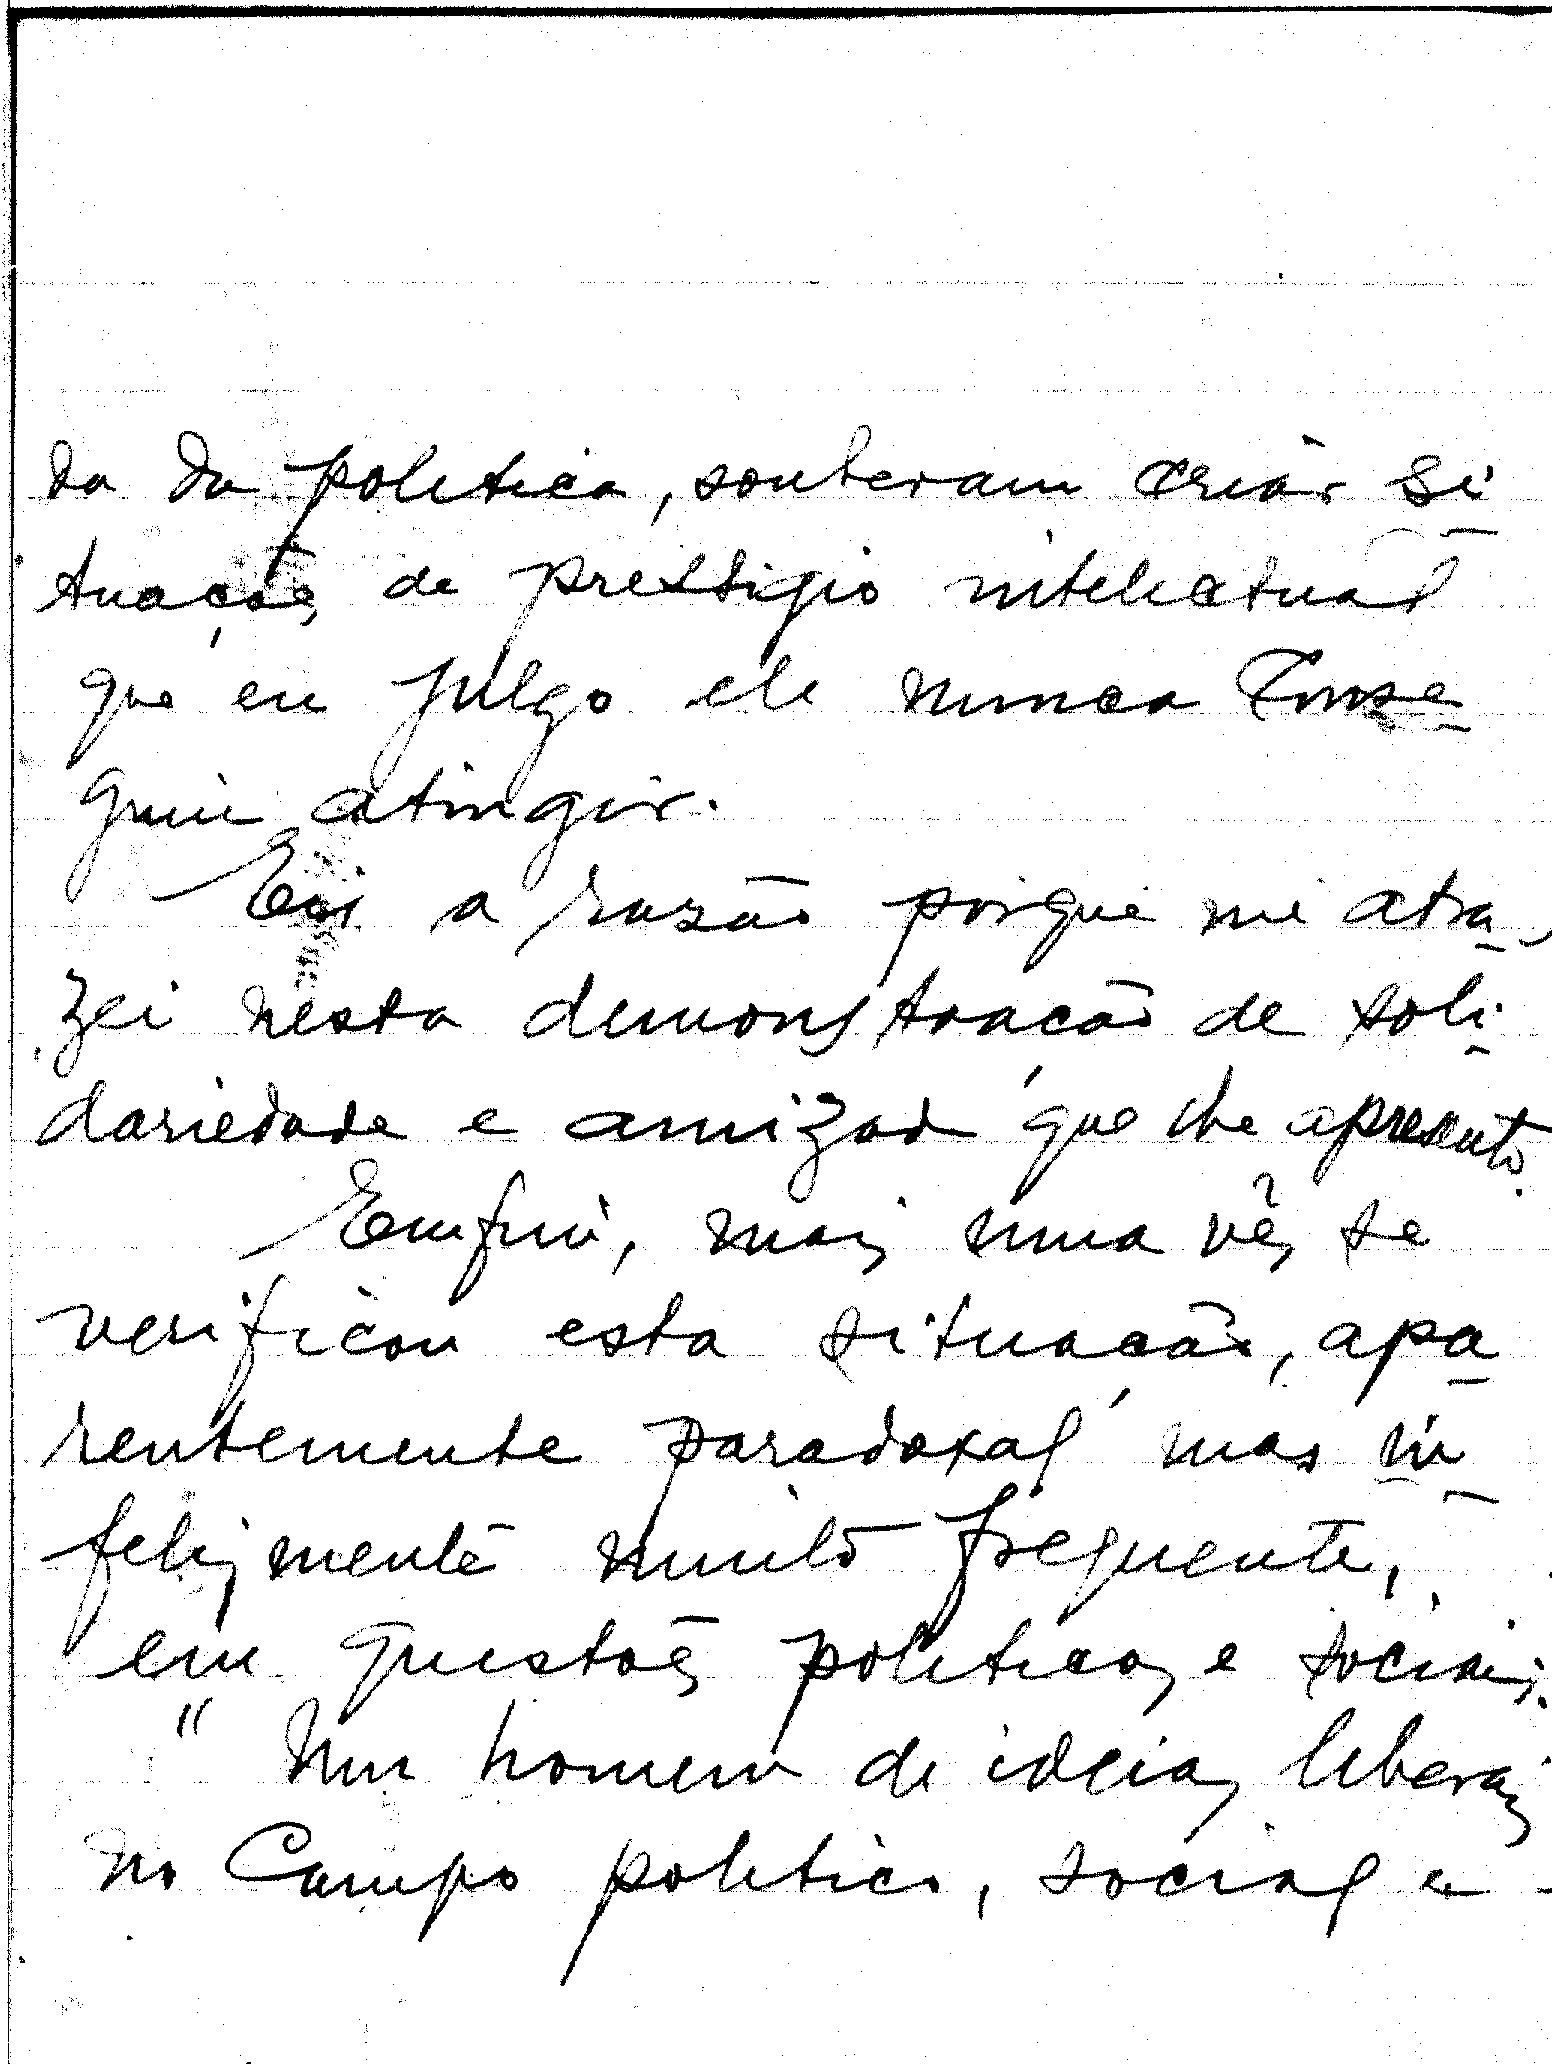 da da politica, souberam criar si-
tuações de prestigio intelectual
que eu julgo ele nunca conse-
guiu atingir.
Eis a razão porque me atra-
zei nesta demonstração de soli-
dariedade e amizade que lhe apresento.
Emfim, mais uma vês se
verificou esta situação, apa-
rentemente paradoxal, mas in-
felizmente muito frequente,
em questões politicas e sociais.
" Um homem de ideias liberais
no campo politico, social e